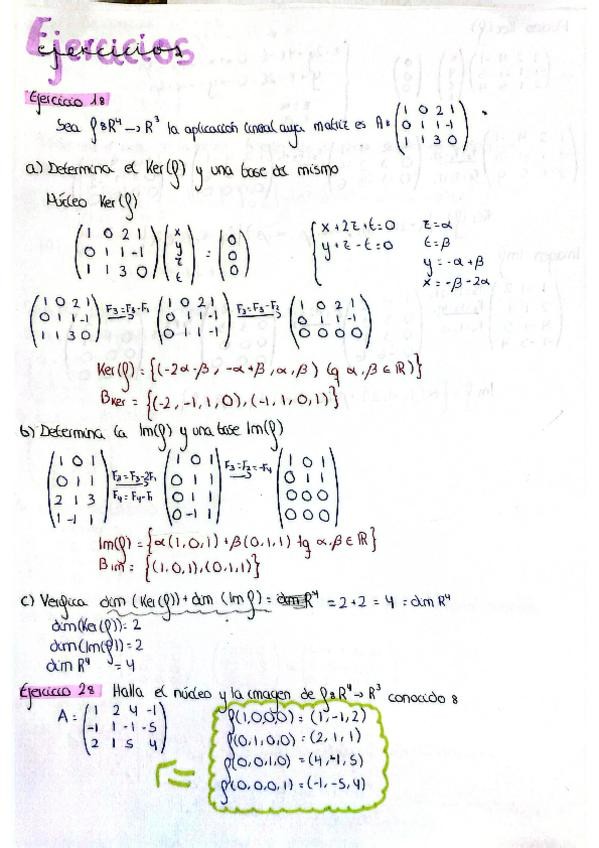 Ejercicios
Ejercicio 1:
Sea f: R⁴ → R³ la aplicación lineal cuya matriz es A = (1 0 2 1
0 1 1 -1
1 1 3 0).
a) Determina el Ker(f) y una base del mismo
Núcleo Ker(f)
(1 0 2 1
0 1 1 -1
1 1 3 0) (x
y
z
t) = (0
0
0)
{x+2z+t=0
y+z-t=0
z=α
t=β
y=-α+β
x=-β-2α
(1 0 2 1
0 1 1 -1
1 1 3 0) F₃=F₃-F₁ (1 0 2 1
0 1 1 -1
0 1 1 -1) F₃=F₃-F₂ (1 0 2 1
0 1 1 -1
0 0 0 0)
Ker(f) = {(-2α-β, -α+β, α, β) tq α, β ∈ R)}
BKer = {(-2, -1, 1, 0), (-1, 1, 0, 1)}
b) Determina la Im(f) y una base Im(f)
(1 0 1
0 1 1
2 1 3
1 -1 1) F₃=F₃-2F₁
F₄=F₄-F₁ (1 0 1
0 1 1
0 1 1
0 -1 1) (1 0 1
0 1 1
0 0 0
0 0 0)
Im(f) = {α(1, 0, 1) + β(0, 1, 1) tq α, β ∈ R}
BIm = {(1, 0, 1), (0, 1, 1)}
c) Verifica dim (Ker(f)) + dim (Im f) = dim R⁴ = 2 + 2 = 4 = dim R⁴
dim(Ker(f)) = 2
dim(Im(f)) = 2
dim R⁴ = 4
Ejercicio 2: Halla el núcleo y la imagen de f: R⁴ → R³ conocido:
A = (1 2 4 -1
-1 1 -1 -5
2 1 5 4)
f(1,0,0,0) = (1, -1, 2)
f(0,1,0,0) = (2, 1, 1)
f(0,0,1,0) = (4, -1, 5)
f(0,0,0,1) = (-1, -5, 4)